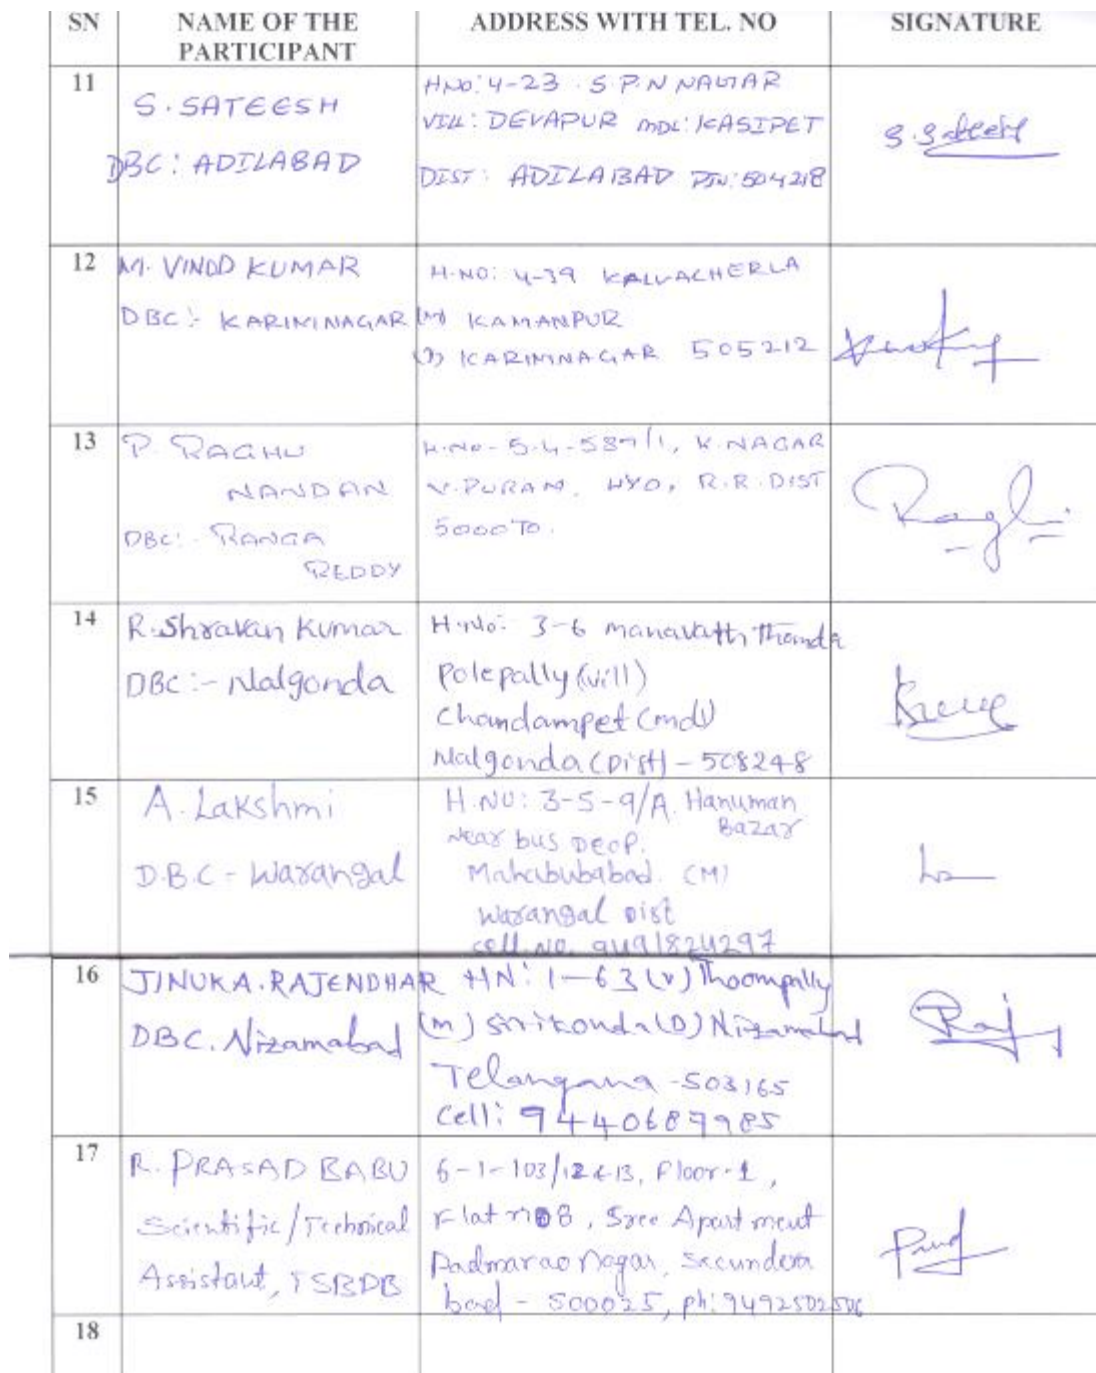 SN NAME OF THE PARTICIPANT ADDRESS WITH TEL. NO SIGNATURE
11
S. SATEESH
DBC: ADILABAD
HNO: 4-23 S.P.N NAGAR
VILL: DEVAPUR MDL: KASIPET
DIST: ADILABAD PIN: 504218
S. Sateesh
12
M. VINOD KUMAR
DBC:- KARIMNAGAR
H.NO: 4-39 KALVACHERLA
(M) KAMANPUR
(D) KARIMNAGAR 505212
13
P. RAGHU
NANDAN
DBC:- RANGA
REDDY
H.NO- 5-4-587/1, K.NAGAR
V.PURAM, HYD, R.R.DIST
500070.
Raghu
14
R. Shravan Kumar
DBC:- Nalgonda
H.No: 3-6 manavath Thanda
Polepally (vill)
Chandampet (mdl)
Nalgonda (Dist) - 508248
15
A. Lakshmi
D.B.C - Warangal
H.NO: 3-5-9/A. Hanuman
Bazar
Near bus Deop.
Mahabubabad. (M)
Warangal Dist
cell.No. 9491824297
16
JINUKA.RAJENDHAR
DBC. Nizamabad
HN: 1-63 (v) Thoompally
(m) Sirikonda (D) Nizamabad
Telangana -503165
Cell: 9440687985
Raj
17
R. PRASAD BABU
Scientific/Technical
Assistant, TSBDB
6-1-103/12&13, Floor-1,
Flat no 8, Sree Apartment
Padmarao Nagar, Secundera
bad - 500025, ph: 9492502506
18